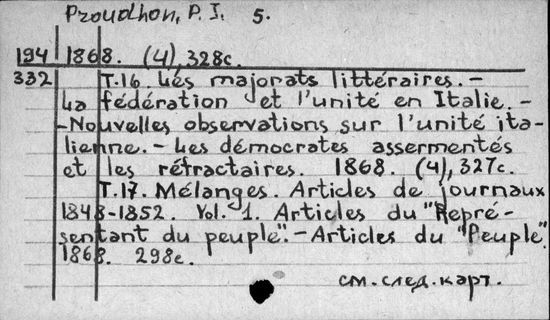 Proudhon, P. I. 5.
194 1868. (4), 328c.
332 T.16 Les majorats littéraires. –
La fédération et l'unité en Italie. –
– Nouvelles observations sur l'unité ita-
lienne. – Les démocrates assermentés
et les réfractaires. 1868. (4), 327c.
T.17. Mélanges. Articles de journaux
1848-1852. Vol. 1. Articles du "Repré-
sentant du peuple". – Articles du "Peuple".
1868. 298c.
см. след. карт.